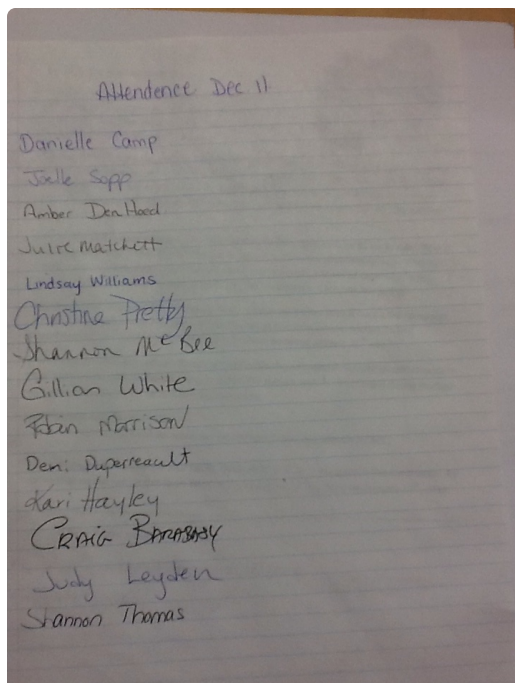 Attendence Dec 11
Danielle Camp
Joelle Sopp
Amber Den Hoed
Julie Matchett
Lindsay Williams
Christine Pretty
Shannon McBee
Gillian White
Robin Morrison
Demi Duperreault
Kari Hayley
CRAIG BARABASY
Judy Leyden
Shannon Thomas